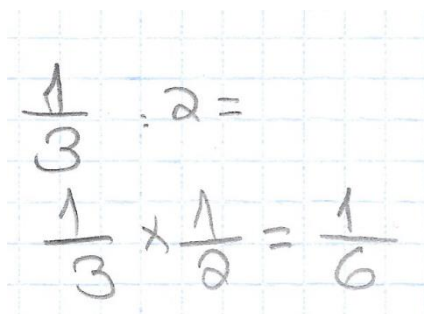 1/3 : 2 =
1/3 x 1/2 = 1/6